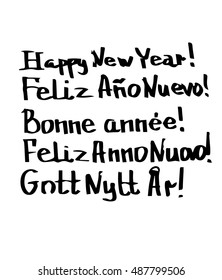 Happy New Year!
Feliz Año Nuevo!
Bonne année!
Feliz Anno Nuovo!
Gott Nytt År!
shutterstock.com · 487799506